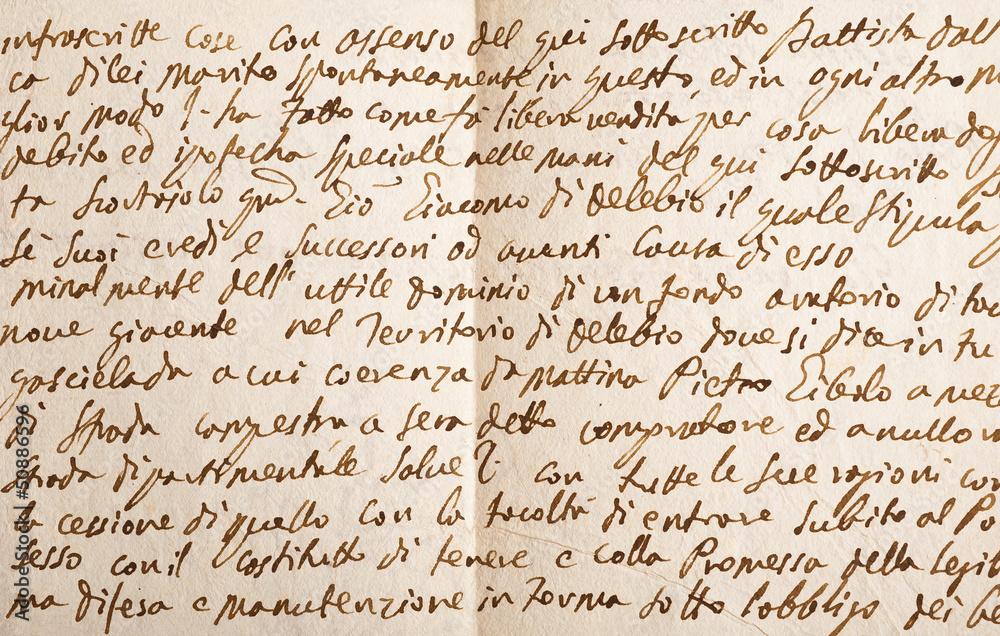 infrascritte cose con assenso del qui sottoscritto Battista dall
ca di lei marito spontaneamente in questo, ed in ogni altro m
glior modo l' ha fatto come fà libera vendita per cosa libera da og
debito ed ipotecha speciale nelle mani del qui sottoscritto
ta qm. Gio Giacomo di Delebio il quale stipula
sè suoi eredi e successori od aventi causa di esso
minalmente dell' uttile dominio di un fondo aratorio di
noue giacente nel Territorio di Delebio doue si dice in
a cui coerenza da mattina Pietro a mez
di strada campestra a sera detto compratore ed a nullo
strada dipartimentale salve con tutte le sue ragioni con
la cessione di quello con la facoltà di entrare subito al Po
sesso con il costitutto di tenere e colla Promessa della legit
ma difesa e manutenzione in forma sotto l'obbligo dei be
Adobe Stock | 59886596